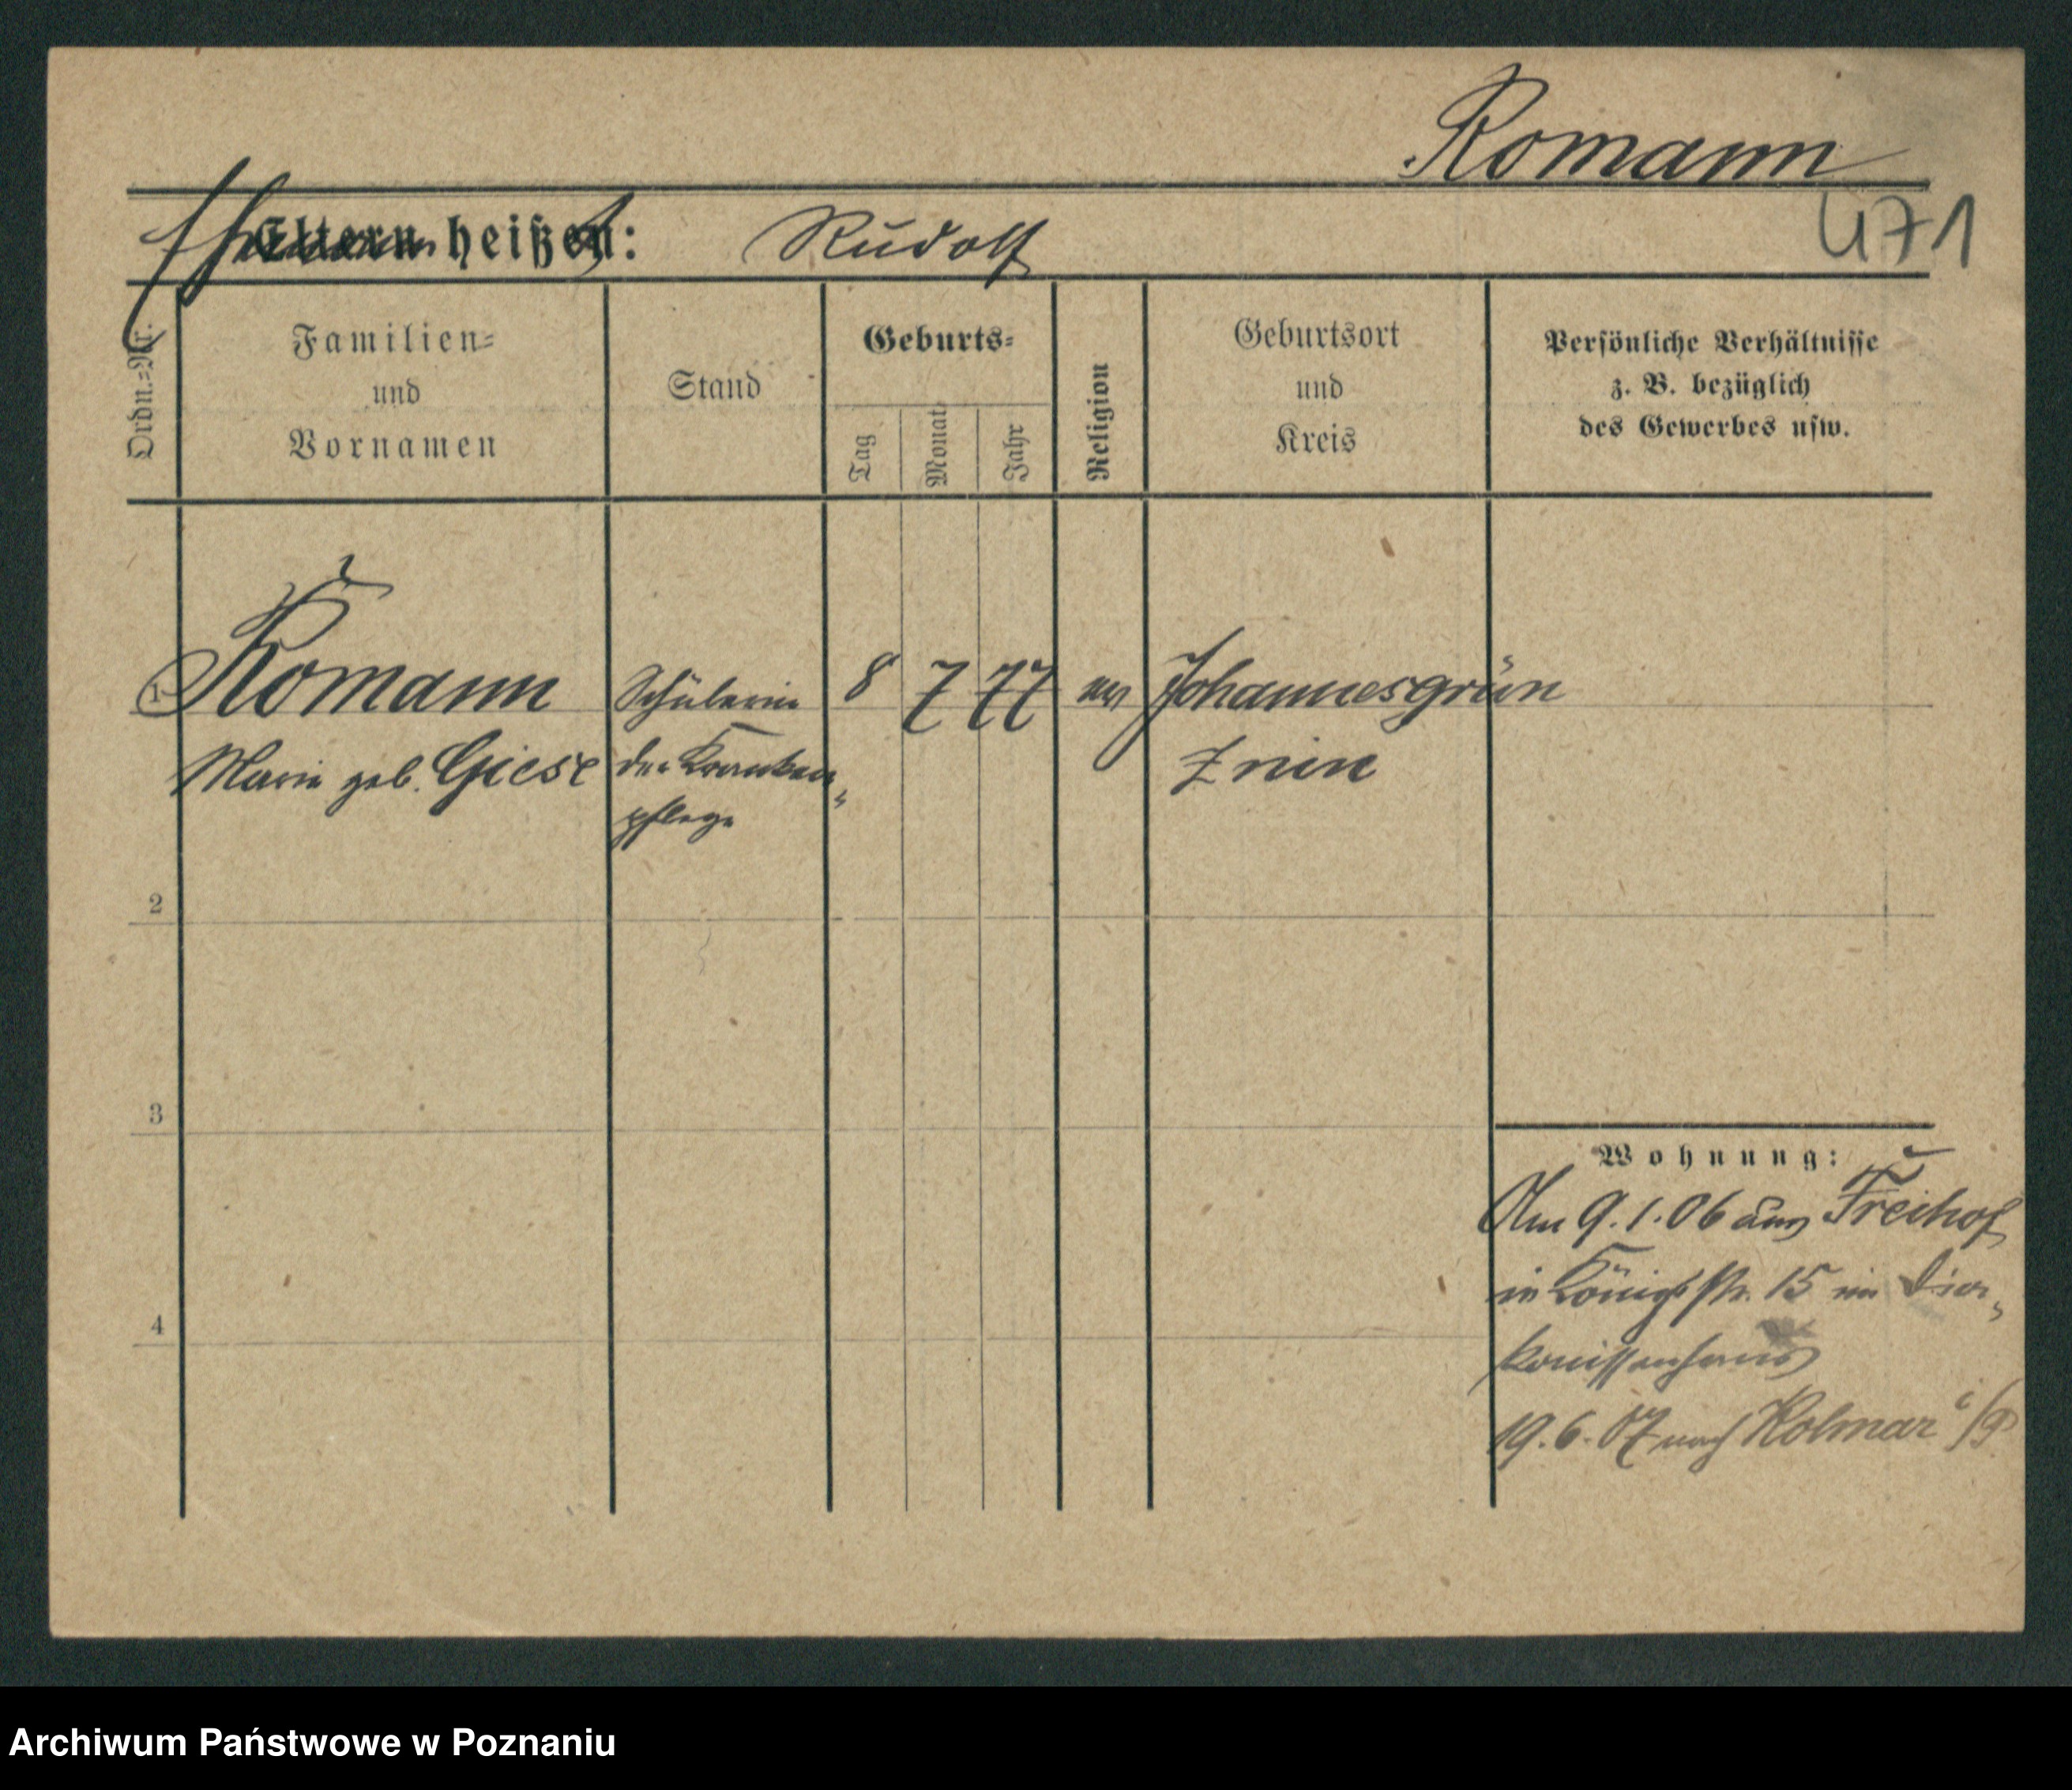 Romann
Ehemann heißt: Rudolf
471
Ordn.=Nr.
Familien=
und
Vornamen
Stand
Geburts=
Tag
Monat
Jahr
Religion
Geburtsort
und
Kreis
Persönliche Verhältnisse
z. B. bezüglich
des Gewerbes usw.
1 Romann Schülerin 8 7 77 ev Johannesgrün
Marie geb. Giese der Kranken= Znin
pflege
2
3
4
Wohnung:
Am 9.1.06 aus Freihof
in Königsstr. 15 im Dia=
konissenhaus
19.6.07 nach Kolmar i/P
Archiwum Państwowe w Poznaniu